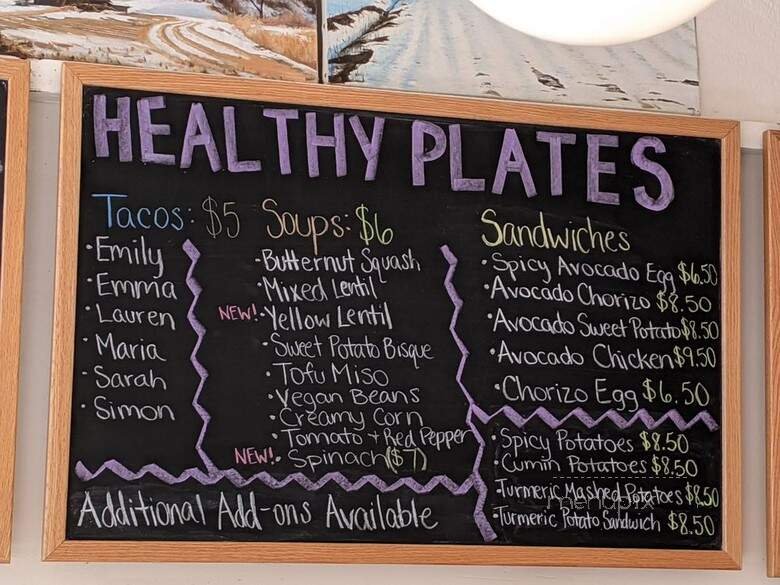 HEALTHY PLATES
Tacos: $5
• Emily
• Emma
• Lauren
• Maria
• Sarah
• Simon
Soups: $6
• Butternut Squash
• Mixed Lentil
NEW! • Yellow Lentil
• Sweet Potato Bisque
• Tofu Miso
• Vegan Beans
• Creamy Corn
• Tomato + Red Pepper
NEW! • Spinach ($7)
Sandwiches
• Spicy Avocado Egg $6.50
• Avocado Chorizo $8.50
• Avocado Sweet Potato $8.50
• Avocado Chicken $9.50
• Chorizo Egg $6.50
• Spicy Potatoes $8.50
• Cumin Potatoes $8.50
• Turmeric Mashed Potatoes $8.50
• Turmeric Potato Sandwich $8.50
Additional Add-ons Available
menupix